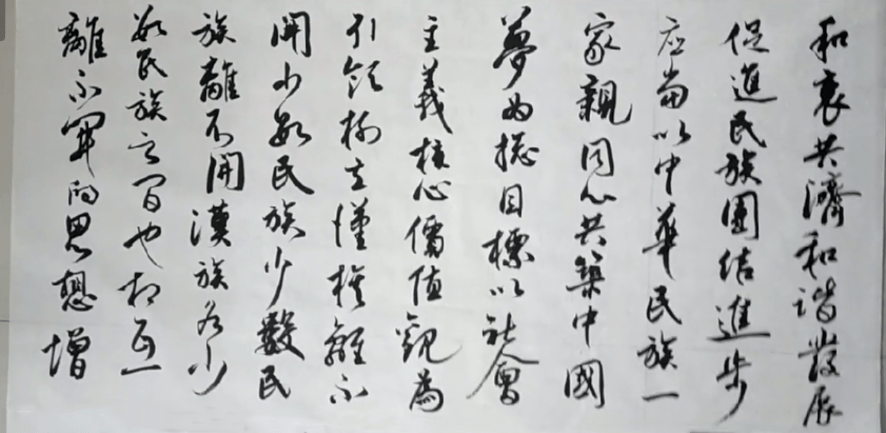 和衷共濟和諧發展
促進民族團结進步
应當以中華民族一
家親同心共築中國
夢为总目標以社會
主義核心價值觀為
引领树立漢族離不
開少数民族少數民
族離不開漢族各少
数民族之间也相互
離不開的思想增